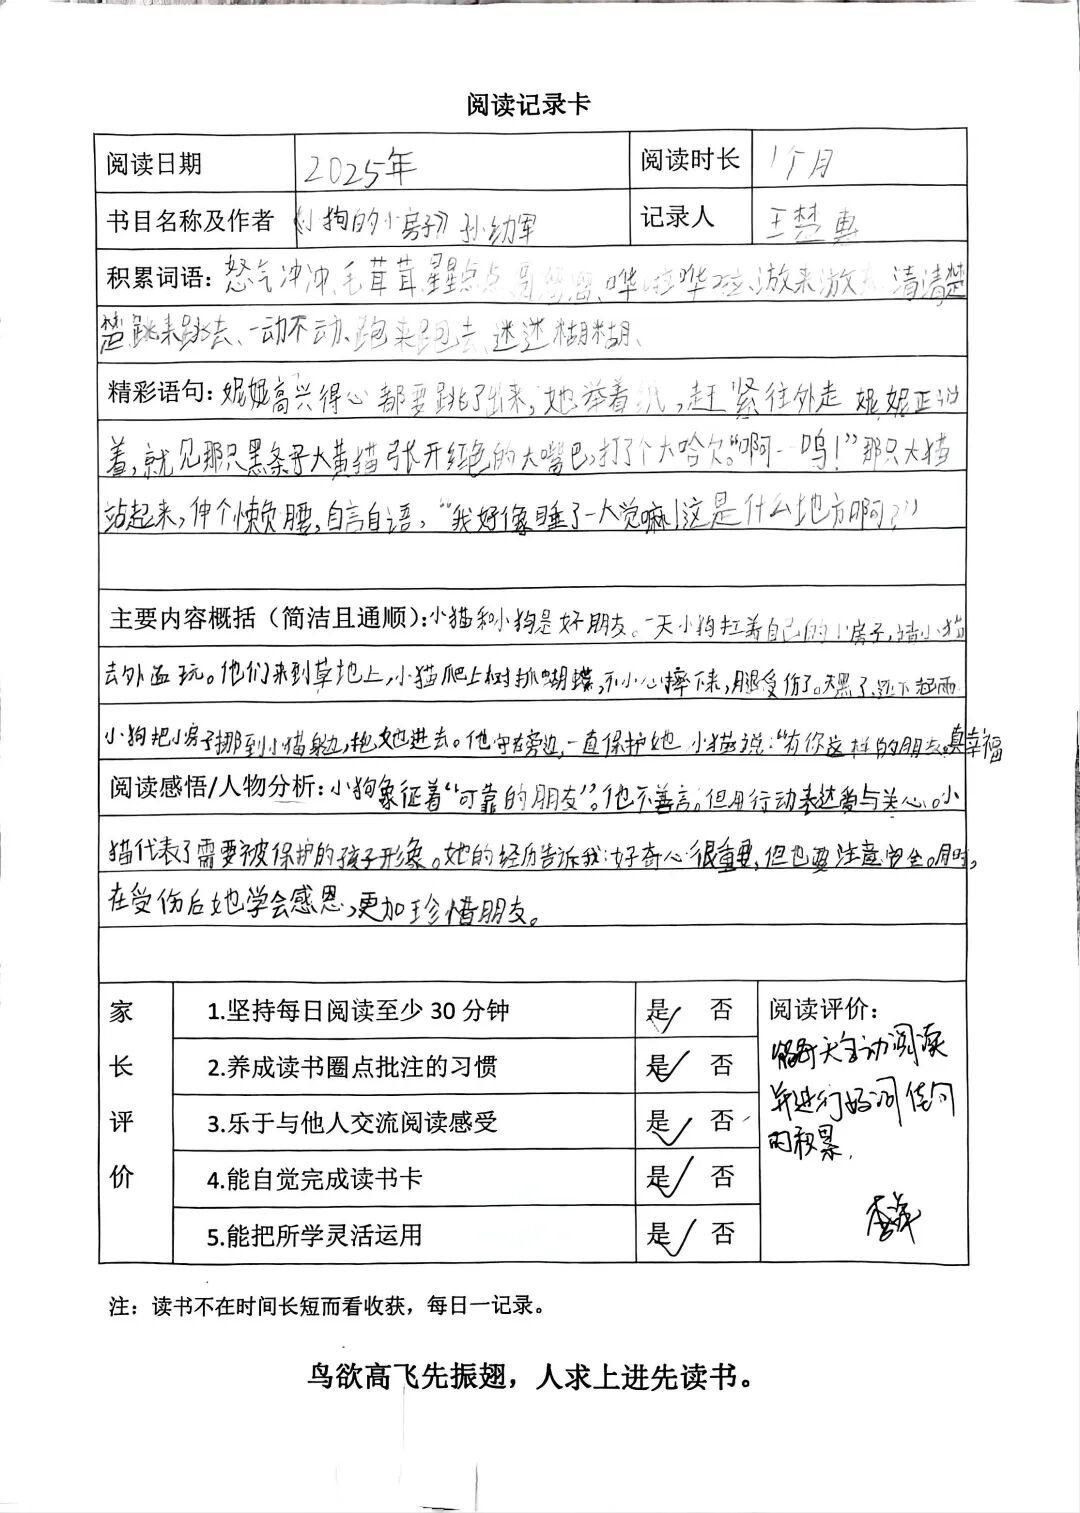 阅读记录卡
阅读日期 2025年 阅读时长 1个月
书目名称及作者 《小狗的小房子》孙幼军 记录人 王楚惠
积累词语：怒气冲冲、毛茸茸、星星点点、哗啦哗啦、游来游去、清清楚
楚、跳来跳去、一动不动、跑来跑去、迷迷糊糊、
精彩语句：妮妮高兴得心都要跳了出来，她举着纸，赶紧往外走 妮妮正说
着，就见那只黑条子大黄猫张开红色的大嘴巴，打了个大哈欠。“啊－－呜！”那只大猫
站起来，伸个懒腰，自言自语，“我好像睡了一大觉嘛！这是什么地方啊？”
主要内容概括（简洁且通顺）：小猫和小狗是好朋友。一天小狗拉着自己的小房子，请小猫
去外面玩。他们来到草地上，小猫爬上树抓蝴蝶，不小心摔下来，腿受伤了。天黑了，还下起雨
小狗把小房子挪到小猫身边，抱她进去。他守在旁边，一直保护她 小猫说：“有你这样的朋友。真幸福
阅读感悟/人物分析：小狗象征着“可靠的朋友”。他不善言。但用行动表达爱与关心。小
猫代表了需要被保护的孩子形象。她的经历告诉我：好奇心很重要，但也要注意安全。同时，
在受伤后她学会感恩，更加珍惜朋友。
家长评价
1.坚持每日阅读至少 30 分钟 是✓ 否
2.养成读书圈点批注的习惯 是✓ 否
3.乐于与他人交流阅读感受 是✓ 否
4.能自觉完成读书卡 是✓ 否
5.能把所学灵活运用 是✓ 否
阅读评价：
能每天主动阅读
并进行好词佳句
的积累.
注：读书不在时间长短而看收获，每日一记录。
鸟欲高飞先振翅，人求上进先读书。